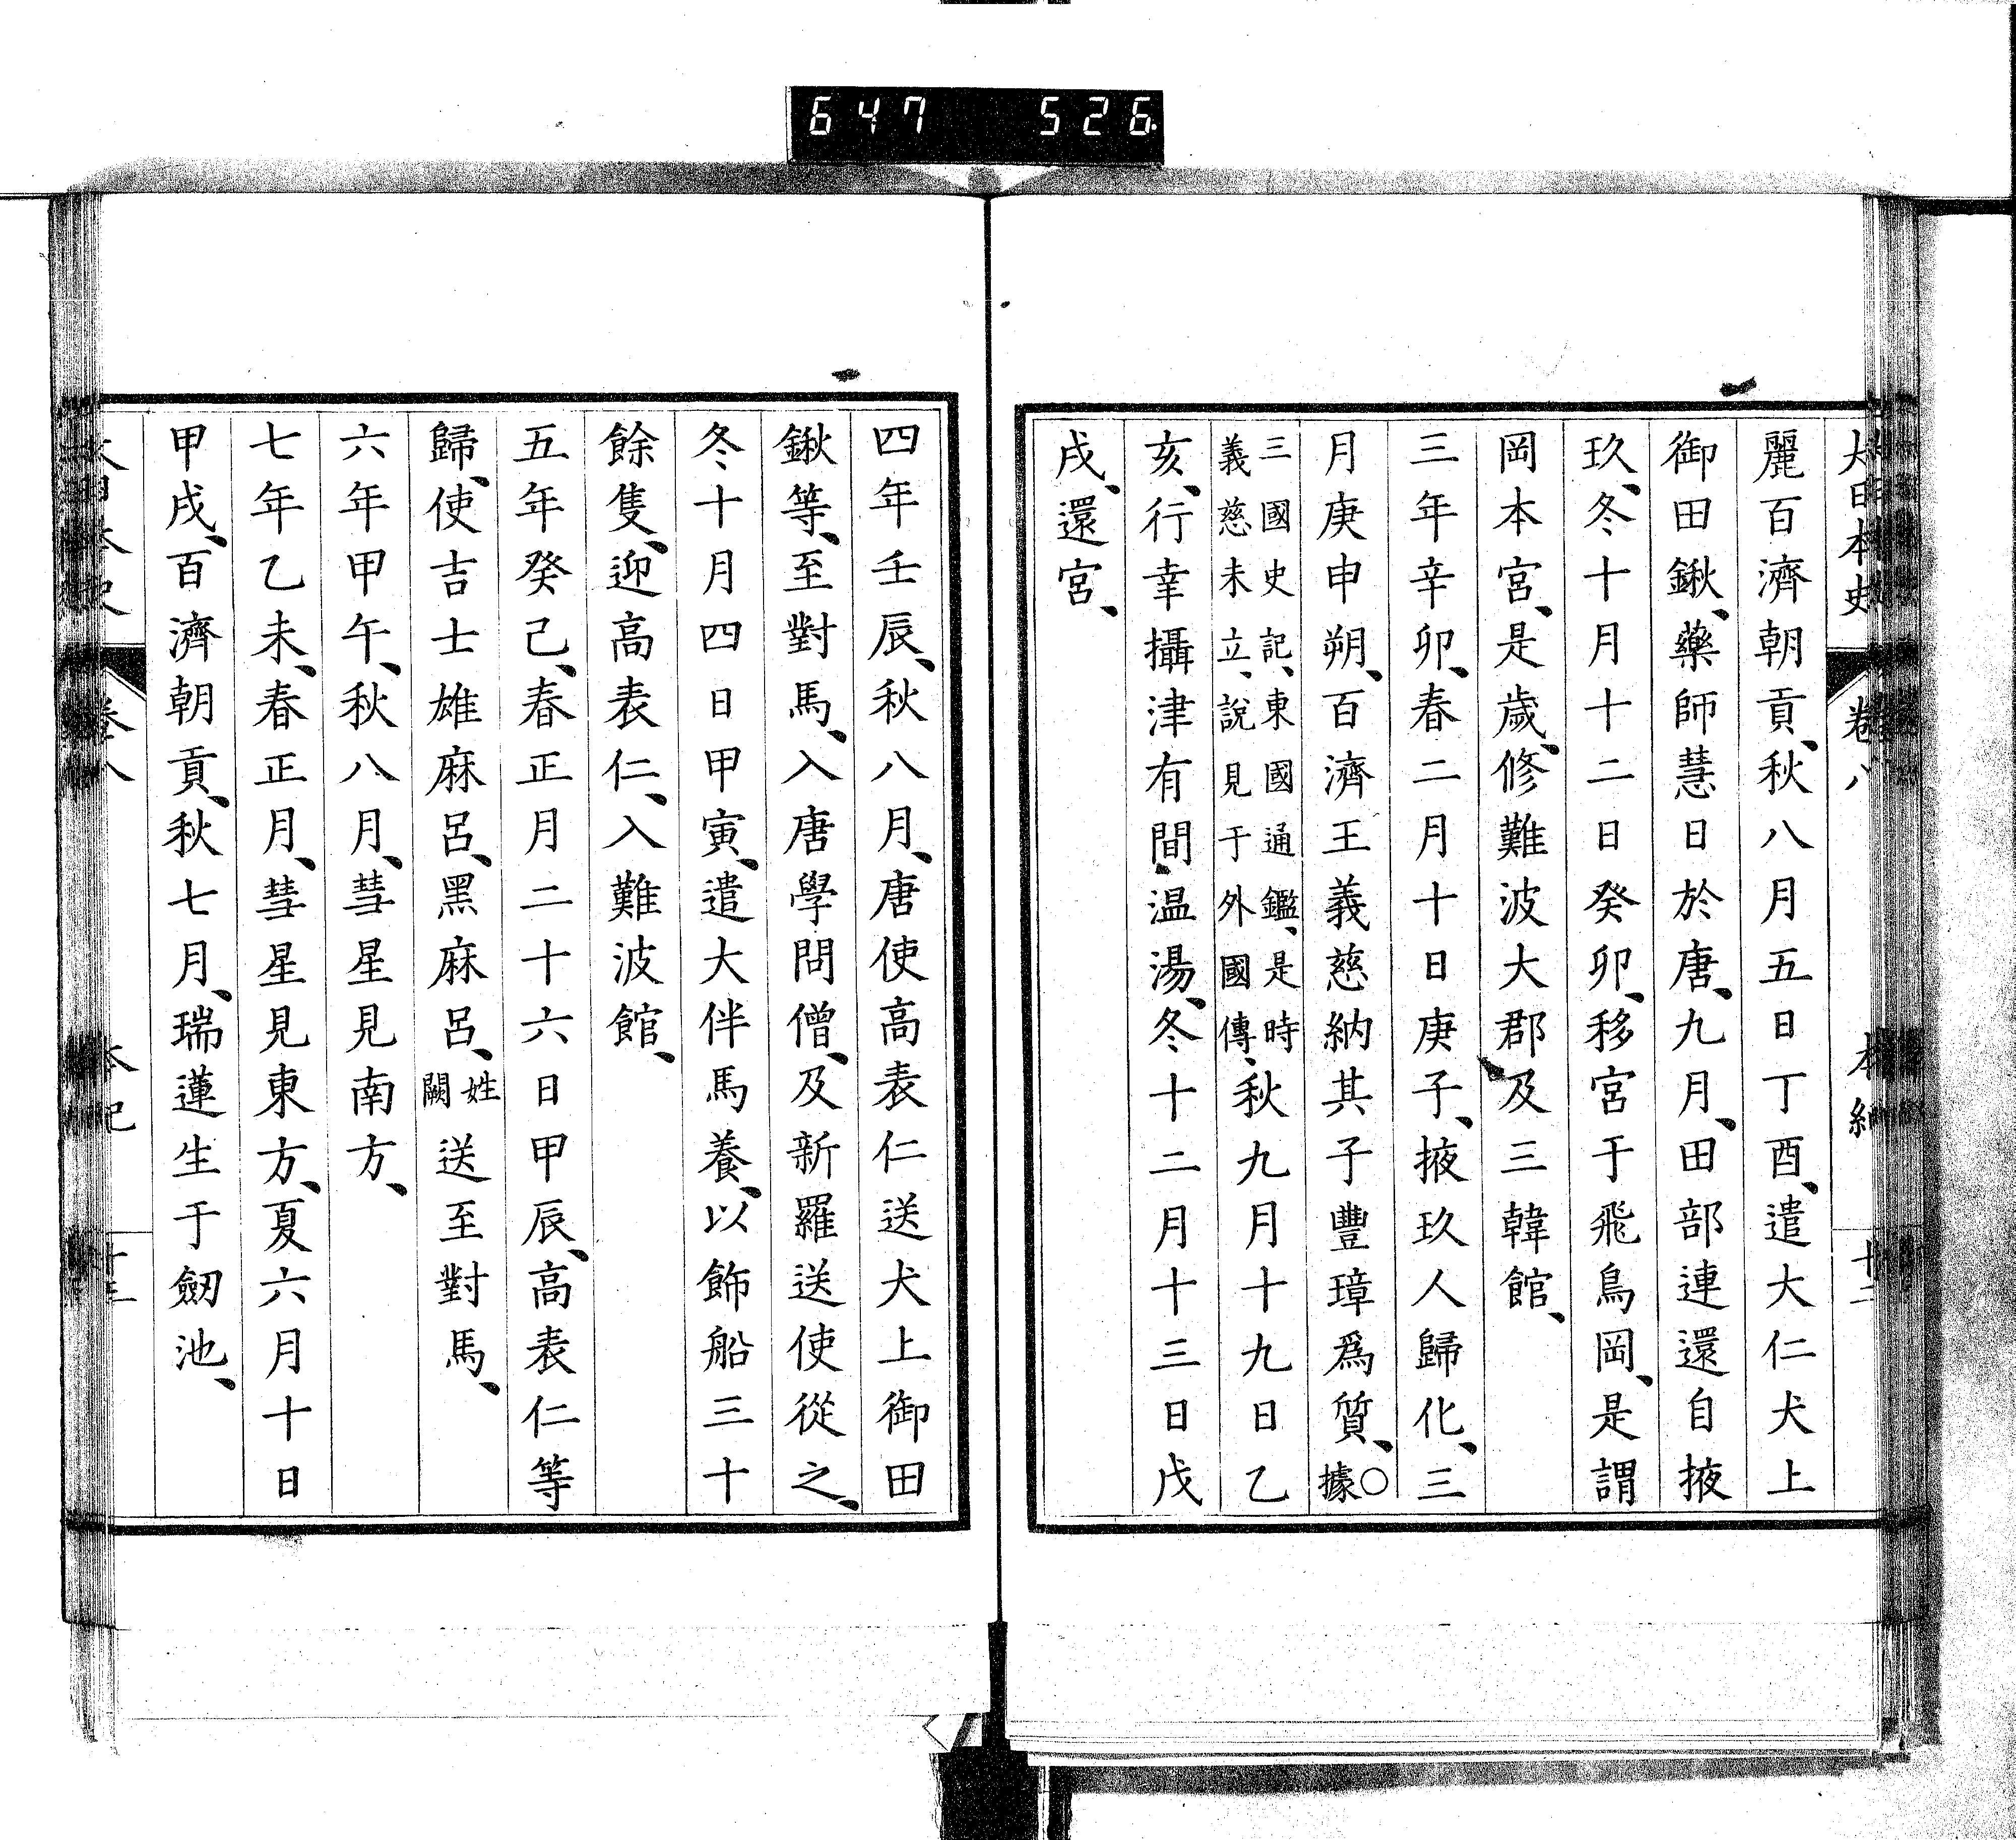 647 526
大日本史 卷八 本紀 十二
麗百濟朝貢、秋八月五日丁酉、遣大仁犬上
御田鍬、藥師慧日於唐、九月、田部連還自掖
玖、冬十月十二日癸卯、移宮于飛鳥岡、是謂
岡本宮、是歲、修難波大郡及三韓館、
三年辛卯、春二月十日庚子、掖玖人歸化、三
月庚申朔、百濟王義慈納其子豐璋爲質、○據
三國史記、東國通鑑、是時
義慈未立、說見于外國傳、秋九月十九日乙
亥、行幸攝津有間、温湯、冬十二月十三日戊
戌、還宮、
四年壬辰、秋八月、唐使高表仁送犬上御田
鍬等、至對馬、入唐學問僧、及新羅送使從之、
冬十月四日甲寅、遣大伴馬養、以飾船三十
餘隻、迎高表仁、入難波館、
五年癸己、春正月二十六日甲辰、高表仁等
歸、使吉士雄麻呂、黑麻呂、姓闕送至對馬、
六年甲午、秋八月、彗星見南方、
七年乙未、春正月、彗星見東方、夏六月十日
甲戌、百濟朝貢、秋七月、瑞蓮生于劒池、
卷八 本紀